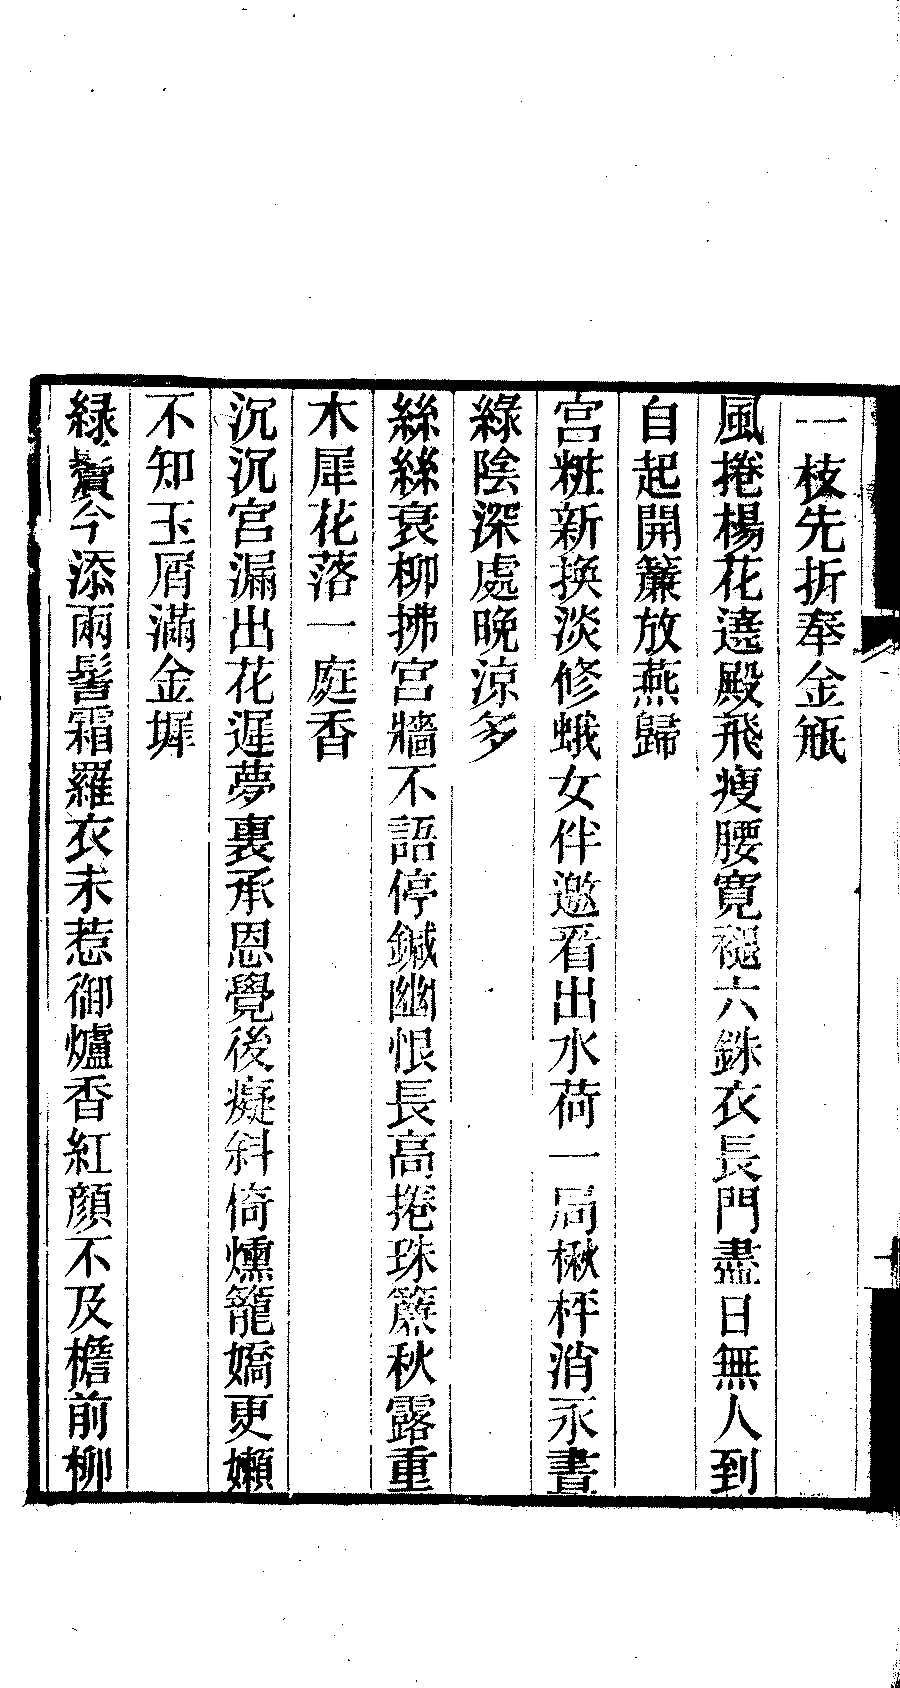 一枝先折奉金瓶
風捲楊花遶殿飛瘦腰寬褪六銖衣長門盡日無人到
自起開簾放燕歸
宮粧新換淡修蛾女伴邀看出水荷一局楸枰消永晝
綠陰深處晚涼多
絲絲衰柳拂宮牆不語停鍼幽恨長高捲珠簾秋露重
木犀花落一庭香
沉沉宮漏出花遲夢裏承恩覺後癡斜倚燻籠嬌更嬾
不知玉屑滿金墀
綠鬢今添兩髩霜羅衣未惹御爐香紅顏不及檐前柳